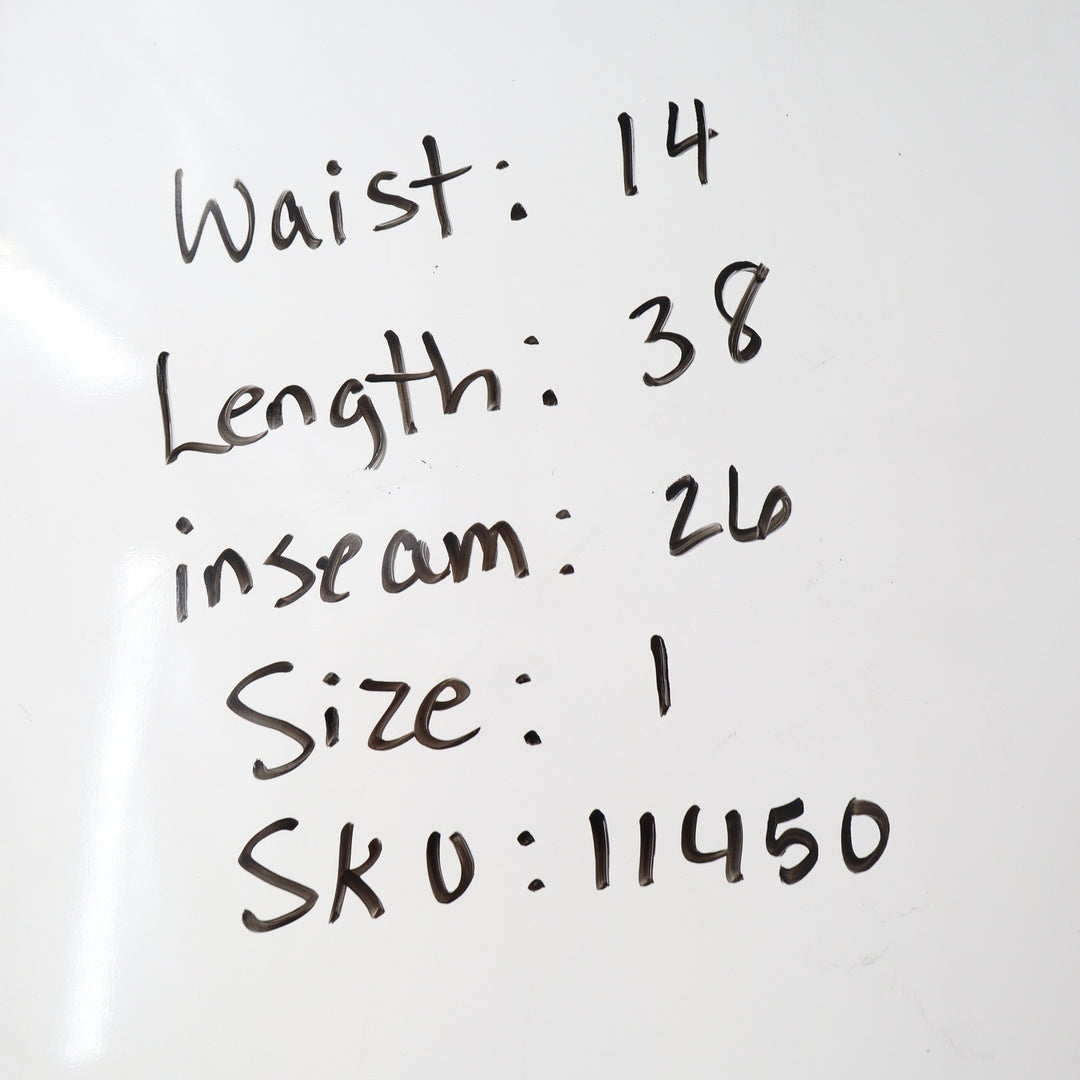 Waist: 14
Length: 38
inseam: 26
Size: 1
SKU: 11450